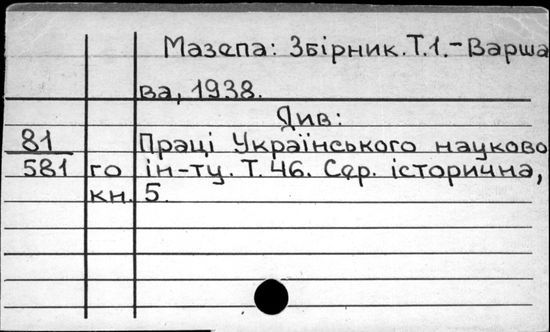 Мазепа: Збірник. Т.1.-Варша
ва, 1938.
Див:
81 Праці Українського науково
581 го ін-ту. Т. 46. Сер. історична,
кн. 5.